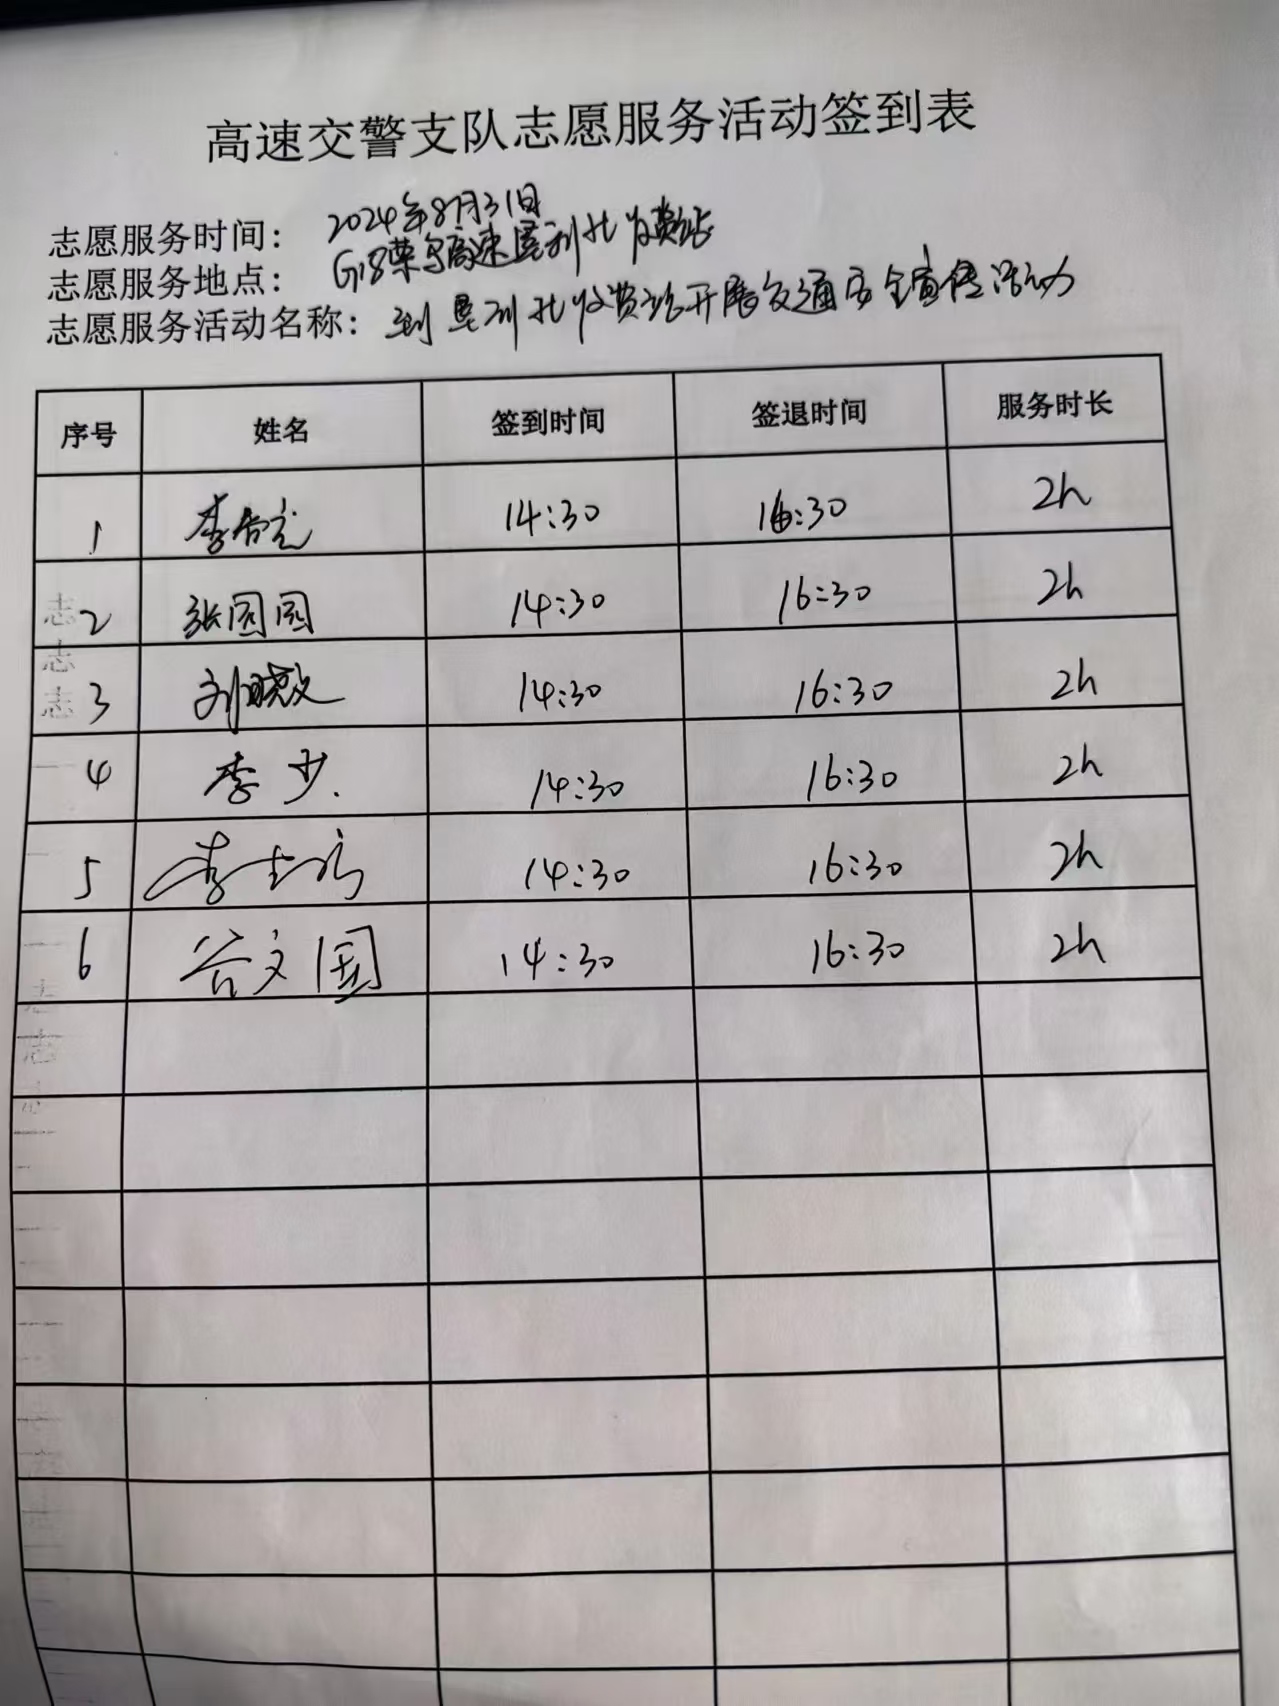 高速交警支队志愿服务活动签到表
志愿服务时间： 2024年8月31日
志愿服务地点： G18荣乌高速垦利北收费站
志愿服务活动名称： 到垦利北收费站开展交通安全宣传活动
序号 姓名 签到时间 签退时间 服务时长
1 李 14:30 16:30 2h
2 张园园 14:30 16:30 2h
3 刘晓 14:30 16:30 2h
4 李少 14:30 16:30 2h
5 李 14:30 16:30 2h
6 谷文国 14:30 16:30 2h